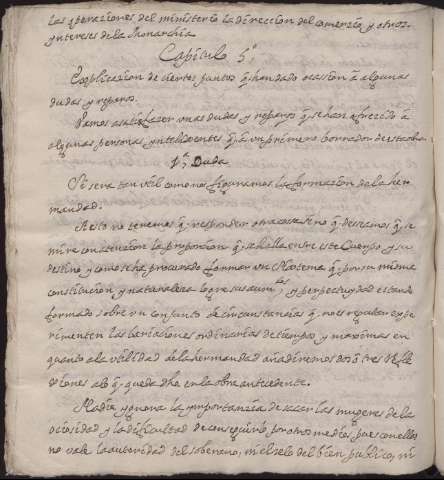 las operaciones del ministerio la direccion del comercio y otros
yntereses de la Monarchia
Capitulo 5º
Explicacion de ciertos puntos q han dado ocassion â algunas
dudas y reparos.
Vamos a satisfazer unas dudas y reparos q se han ofrecido â
algunas personas ynteligentes q â un primero borrador de esta obra
1ª Duda
Si sera tan util como nos figuramos la formacion de la her
mandad;
A esto no tenemos q responder otra cosa sino q deseamos q se
mire con atencion la proporcion q se halla entre este Cuerpo y su
destino y como se ha procurado formar un Sistema q por su misma
constitucion y naturaleza logre su aumto y perpetuydad estando
formado sobre un conjunto de circunstancias q no es regular espe
rimenten las bariaciones ordinarias de tiempos y maximas en
quanto a la utilidad de la hermandad añadiremos dos ô tres refle
xiones a lo q queda dho en la obra antecedente.
Nadie ygnora la ymportanzia de sacar las mugeres de la
ociosidad y la dificultad de conseguirlo por otros medios pues con ellos
no vale la autoridad del soberano, ni el zelo del bien publico, ni